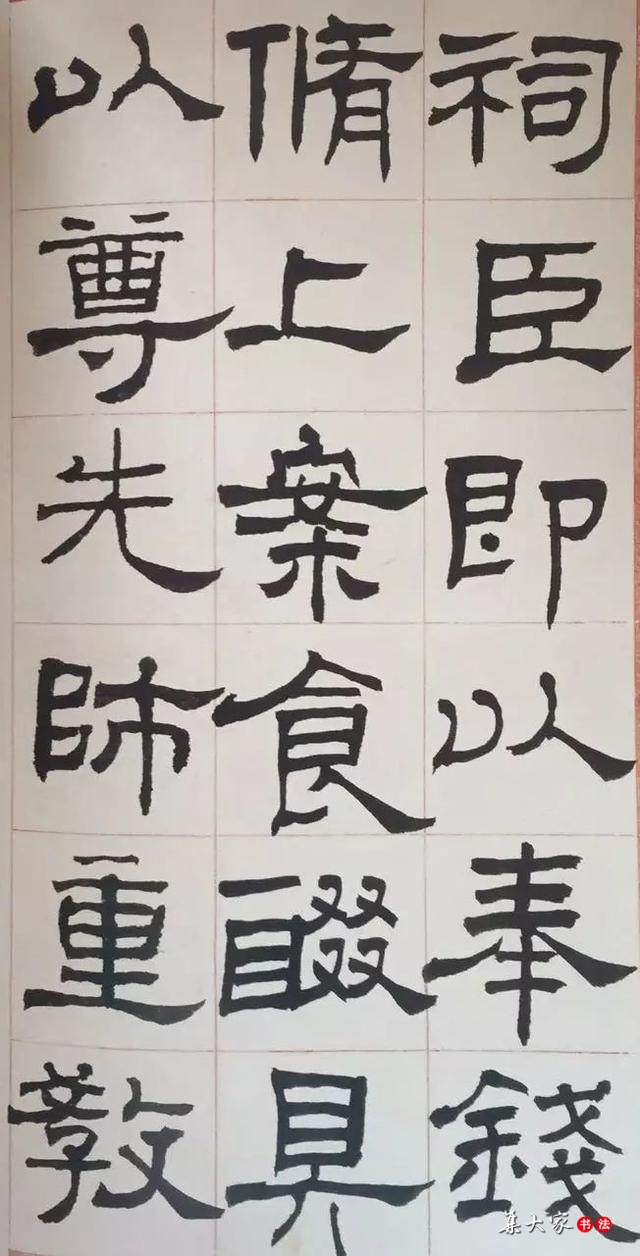 祠臣即以奉錢
脩上案食醊具
以尊先師重教
集大家书法